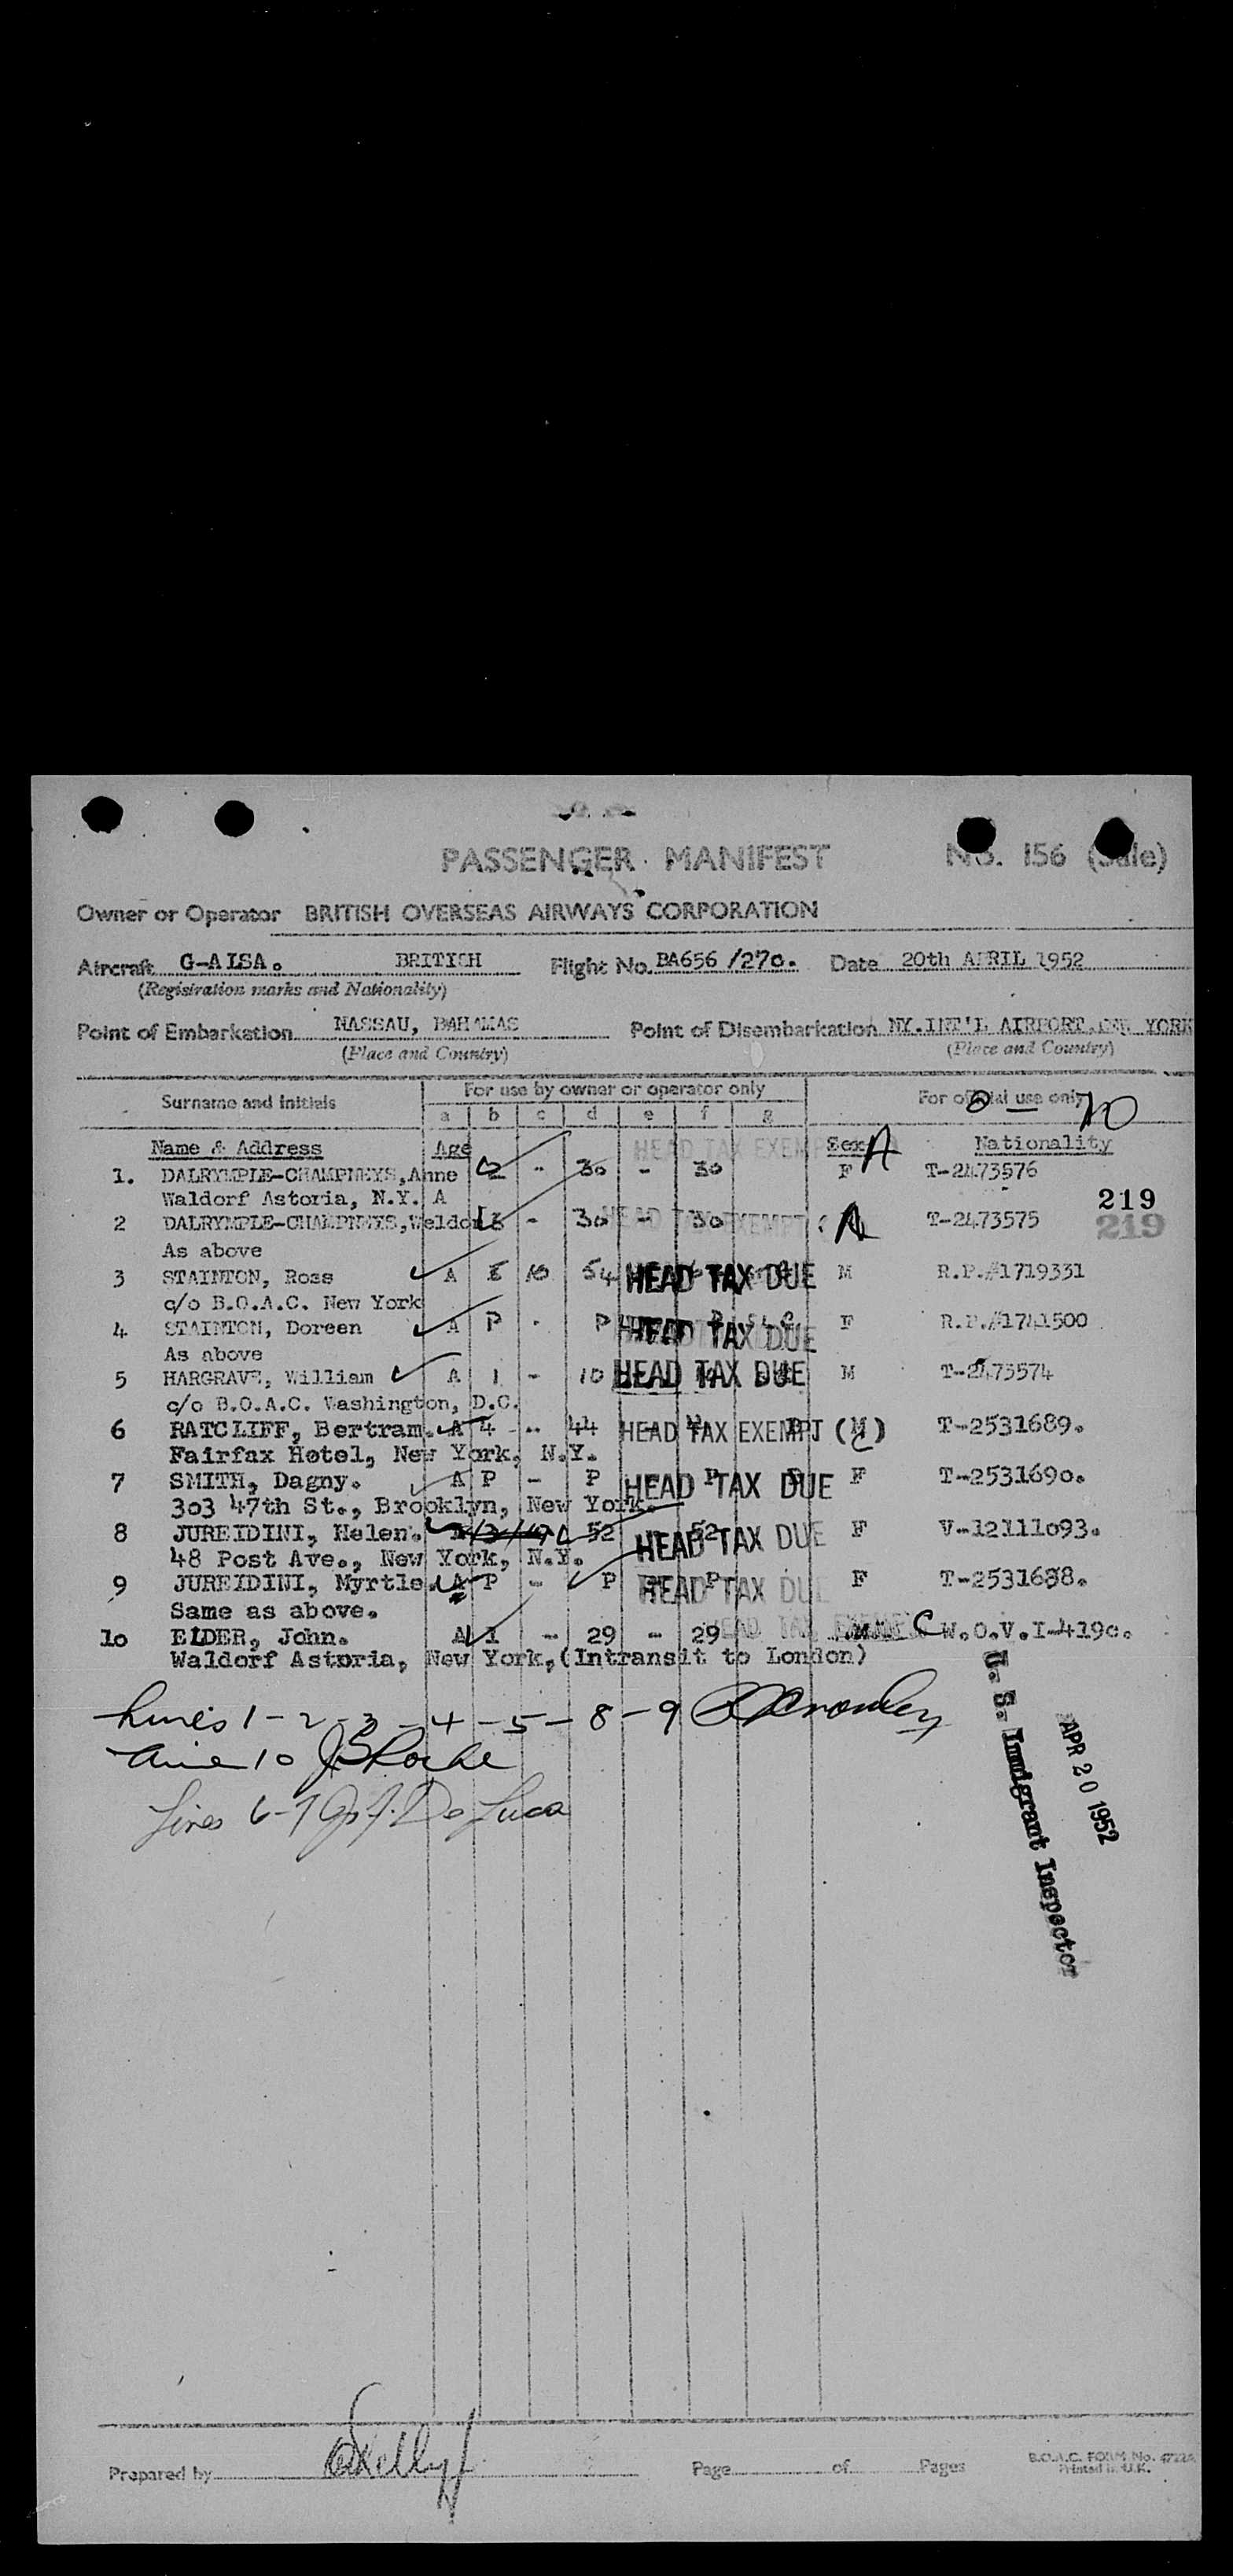 PASSENGER MANIFEST No. 156 (Sale)
Owner or Operator BRITISH OVERSEAS AIRWAYS CORPORATION
Aircraft G-ALSA. BRITISH Flight No. BA656 /270. Date 20th APRIL 1952
(Registration marks and Nationality)
Point of Embarkation NASSAU, BAHAMAS Point of Disembarkation NY.INT'L AIRPORT, NEW YORK
(Place and Country) (Place and Country)
Surname and initials For use by owner or operator only For official use only
a b c d e f g
Name & Address Age HEAD TAX EXEMPT Sex A Nationality
1. DALRYMPLE-CHAMPNEYS, Anne 2 - 30 - 30 F T-2473576
Waldorf Astoria, N.Y. A 219
219
2 DALRYMPLE-CHAMPNEYS, Weldon - 30 HEAD TAX EXEMPT 30 A T-2473575
As above
3 STAINTON, Ross A 10 54 HEAD TAX DUE M R.P.#1719331
c/o B.O.A.C. New York
4 STAINTON, Doreen A P - P HEAD TAX DUE F R.P.#1741500
As above
5 HARGRAVE, William A 1 - 10 HEAD TAX DUE M T-2473574
c/o B.O.A.C. Washington, D.C.
6 RATCLIFF, Bertram. A 4 - 44 HEAD TAX EXEMPT (M) T-2531689.
Fairfax Hotel, New York, N.Y.
7 SMITH, Dagny. A P - P HEAD TAX DUE F T-2531690.
303 47th St., Brooklyn, New York.
8 JUREIDINI, Helen. 52 HEAD TAX DUE 52 F V-12111093.
48 Post Ave., New York, N.Y.
9 JUREIDINI, Myrtle. A P - P HEAD TAX DUE P F T-2531688.
Same as above.
10 ELDER, John. A 1 - 29 - 29 HEAD TAX EXEMPT M C W.O.V.I-4190.
Waldorf Astoria, New York, (Intransit to London)
Lines 1-2-3-4-5-8-9 Crowley
Line 10 J S Roche
Lines 6-7 De Luca
U. S. Immigrant Inspector
APR 20 1952
Prepared by Kelly Page of Pages
B.O.A.C. FORM No. 4722A
Printed in U.K.